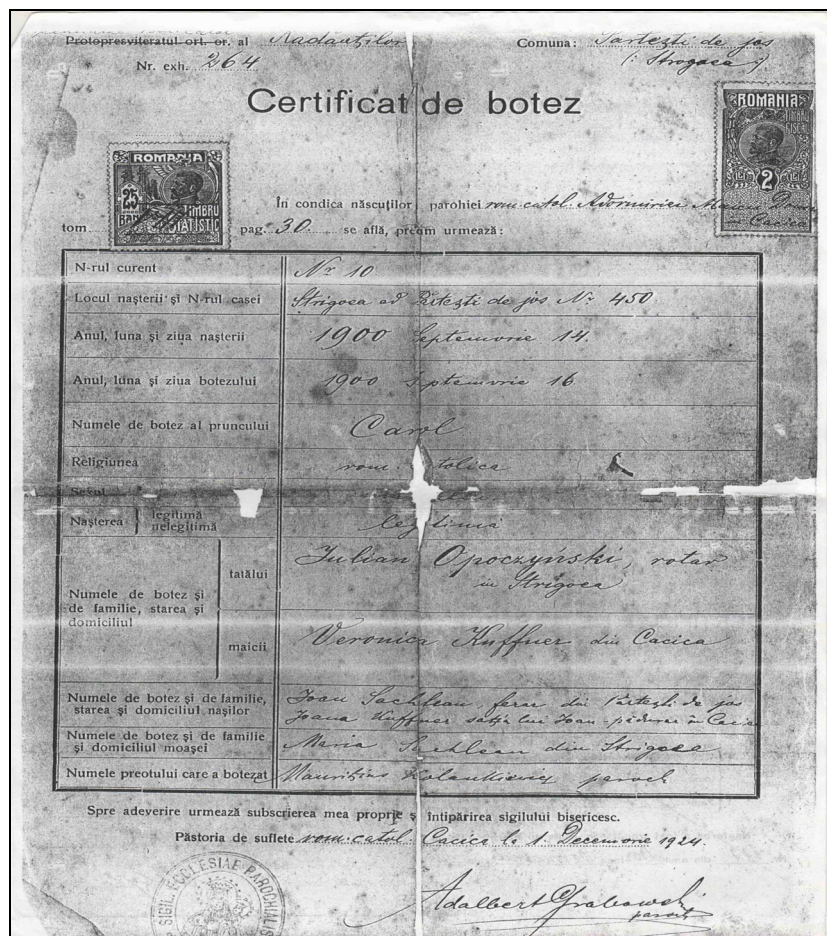 Protopresviteratul ort. or. al Radautilor Comuna: Partești de jos
Nr. exh. 264 (: Strogoea :)
Certificat de botez
ROMANIA
TIMBRU FISCAL
2 LEI
ROMANIA
25 BANI
TIMBRU STATISTIC
În condica născuților parohiei rom. catol. Adormirei Maicei
in Cacica
tom. pag. 30 se află, precum urmează:
N-rul curent Nr 10
Locul nașterii și N-rul casei Strigoea ad Partești de jos Nr 450
Anul, luna și ziua nașterii 1900 Septemvrie 14.
Anul, luna și ziua botezului 1900 Septemvrie 16
Numele de botez al pruncului Carol
Religiunea rom. catolica
Sexul
Nașterea legitimă legitima
nelegitimă
Numele de botez și de familie, starea și domiciliul
tatălui Iulian Opoczyński, rotar
in Strigoea
maicii Veronica Kuffner din Cacica
Numele de botez și de familie, Ioan Sachlean ferar din Partești de jos
starea și domiciliul nașilor Ioana Kuffner soția lui Ioan pădurar in Cacica
Numele de botez și de familie
și domiciliul moașei Maria Sachlean din Strigoea
Numele preotului care a botezat Mauritius Kolankiewicz paroch
Spre adeverire urmează subscrierea mea proprie și întipărirea sigilului bisericesc.
Păstoria de suflete rom. catol. Cacica la 1. Decemvrie 1924.
SIGIL. ECCLESIAE PAROCHIALIS
Adalbert Grabowski
paroch